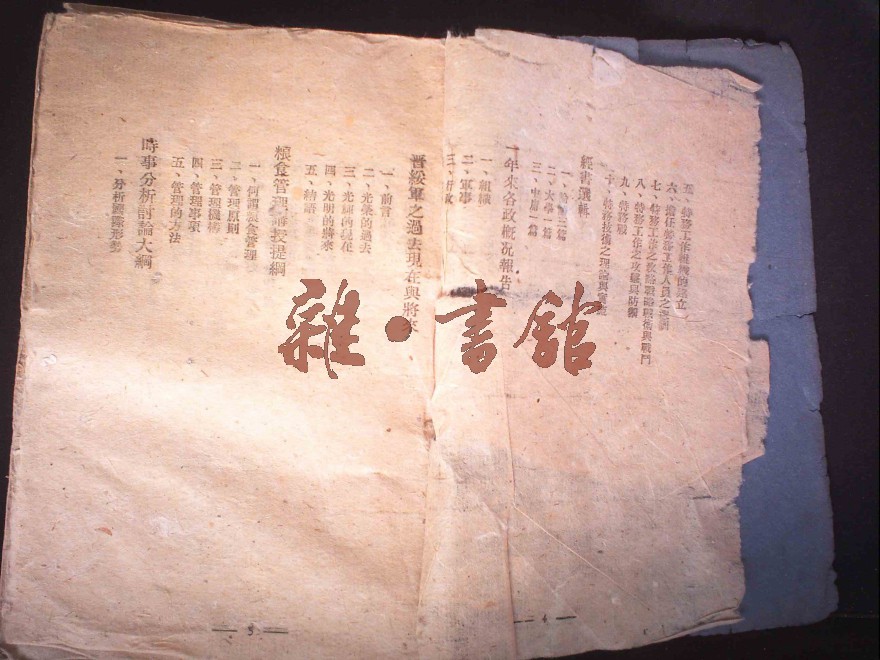 五、特務工作組織的建立
六、擔任特務工作人員之
七、特務工作之攻略戰略戰術與戰鬥
八、特務工作之攻擊與防禦
九、特務戰
十、特務技術之理論與實
經書選輯
一、
二、大學一篇
三、中庸一篇
一年來各政概况報告
一、組織
二、軍事
三、行政
晋綏軍之過去現在與將來
一、前言
二、光榮的過去
三、光輝的現在
四、光明的將來
五、結語
糧食管理講授提綱
一、何謂糧食管理
二、管理原則
三、管理機構
四、管理事項
五、管理的方法
時事分析討論大綱
一、分析國際形勢
4
5
雜·書館